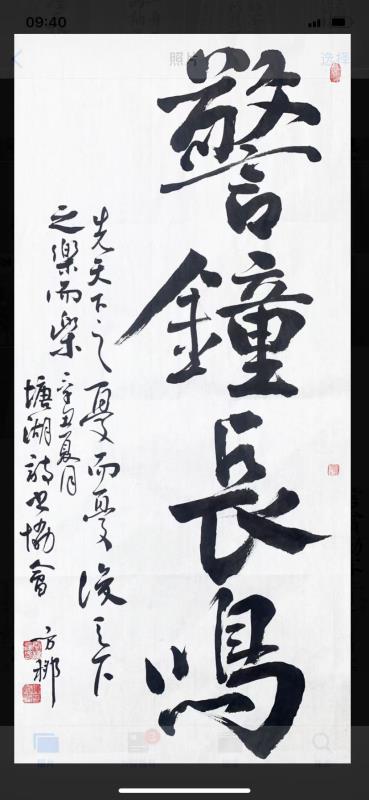 09:40
照片
选择
警鐘長鳴
先天下之憂而憂後天下
之樂而樂
辛丑夏月
塘湖詩书協會 方